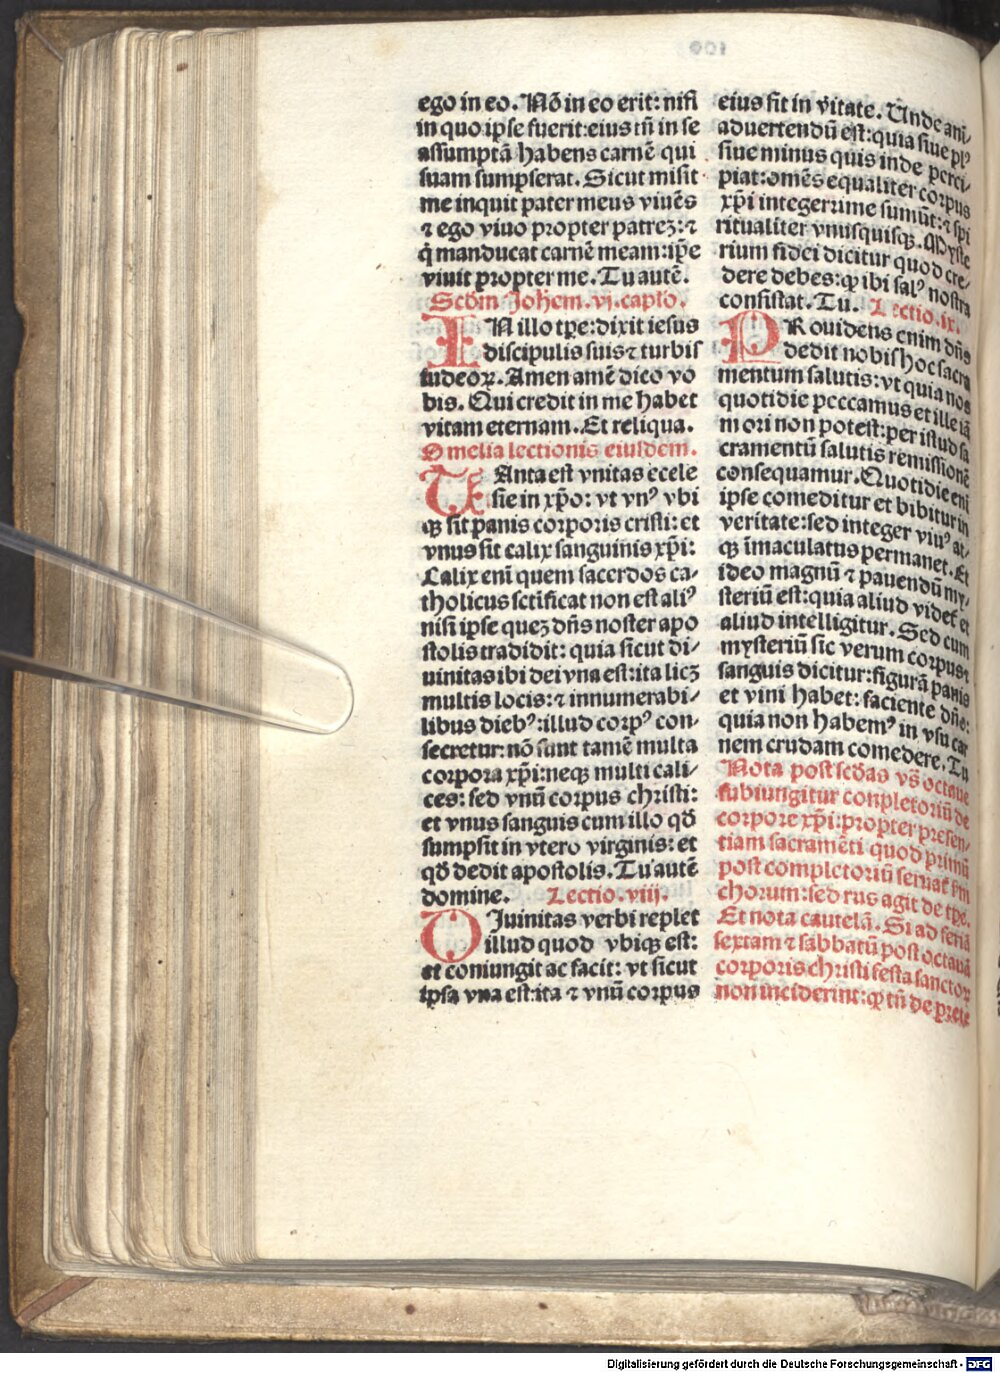 ego in eo. Nō in eo erit: nisi
in quo ip̄se fuerit: eius tn̄ in se
assumptā habens carnē qui
suam sumpserat. Sicut misit
me inquit pater meus viuēs
⁊ ego viuo propter patreꝫ: ⁊
q̇ manducat carnē meam: ip̄e
viuit propter me. Tu autē.
Scd̄m Joh̄em. vj. caplo.
IN illo tp̄e: dixit iesus
discipulis suis ⁊ turbis
iudeoꝝ. Amen amē dico vo
bis. Qui credit in me habet
vitam eternam. Et reliqua.
Omelia lectionis eiusdem.
TAnta est vnitas eccle
sie in xp̄o: vt vnꝰ vbi
qꝫ sit panis corporis cristi: et
vnus sit calix sanguinis xp̄i:
Calix eni quem sacerdos ca-
tholicus sc̄tificat non est aliꝰ
nisi ipse queꝫ dn̄s noster apo
stolis tradidit: quia sicut di-
uinitas ibi dei vna est: ita licꝫ
multis locis: ⁊ innumerabi-
libus diebꝰ: illud corpꝰ con-
secretur: nō sunt tamē multa
corpora xp̄i: neqꝫ multi cali-
ces: sed vnū corpus christi:
et vnus sanguis cum illo qd̄
sumpsit in vtero virginis: et
qd̄ dedit apostolis. Tu autē
domine. Lectio. viij.
DIuinitas verbi replet
illud quod vbiqꝫ est:
et coniungit ac facit: vt sicut
ipsa vna est: ita ⁊ vnū corpus
eius sit in v̄itate. Unde ani-
aduertendū est: quia siue plꝰ
siue minus quis inde perci-
piat: omēs equaliter corpus
xp̄i integerrime sumūt: ⁊ spi
ritualiter vnusquisqꝫ. Myste
rium fidei dicitur quod cre-
dere debes: ꝙ ibi salꝰ nostra
consistat. Tu. Lectio. ix.
PRouidens enim dn̄s
dedit nobis hoc sacra
mentum salutis: vt quia nos
quotidie peccamus et ille iā
mori non potest: per istud sa
cramentū salutis remissionē
consequamur. Quotidie eni
ipse comeditur et bibitur in
veritate: sed integer viuꝰ at-
qꝫ imaculatus permanet. Et
ideo magnū ⁊ pauendū my-
steriū est: quia aliud videt̄ et
aliud intelligitur. Sed cum
mysteriū sic verum corpus ⁊
sanguis dicitur: figurā panis
et vini habet: faciente dn̄o:
quia non habemꝰ in vsu car
nem crudam comedere. Tu
Nota post scd̄as vs̄ octaue
subiungitur conpletoriū de
corpore xp̄i: propter presen-
tiam sacramēti quod primū
post completoriū seruat̄ s̄m
chorum: sed rus agit de tp̄e.
Et nota cautelā. Si ad feriā
sextam ⁊ sabbatū post octauā
corporis christi festa sanctoꝝ
non inciderint: ꝙ tn̄ de p̄cte
Digitalisierung gefördert durch die Deutsche Forschungsgemeinschaft - DFG